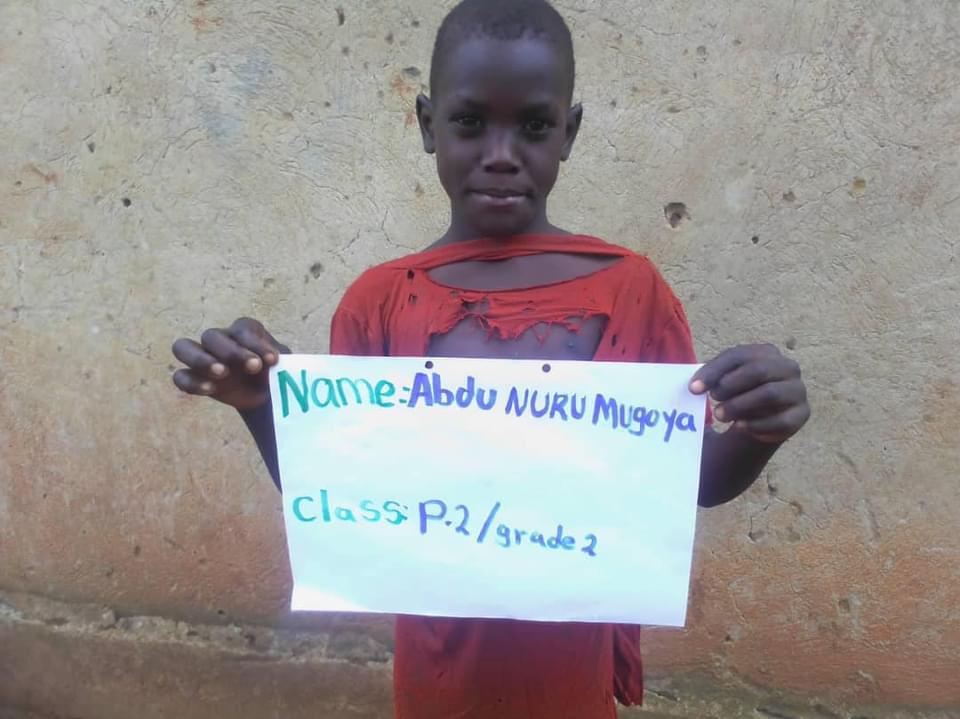 Name:-Abdu NURU Mugoya
Class: P.2/grade 2